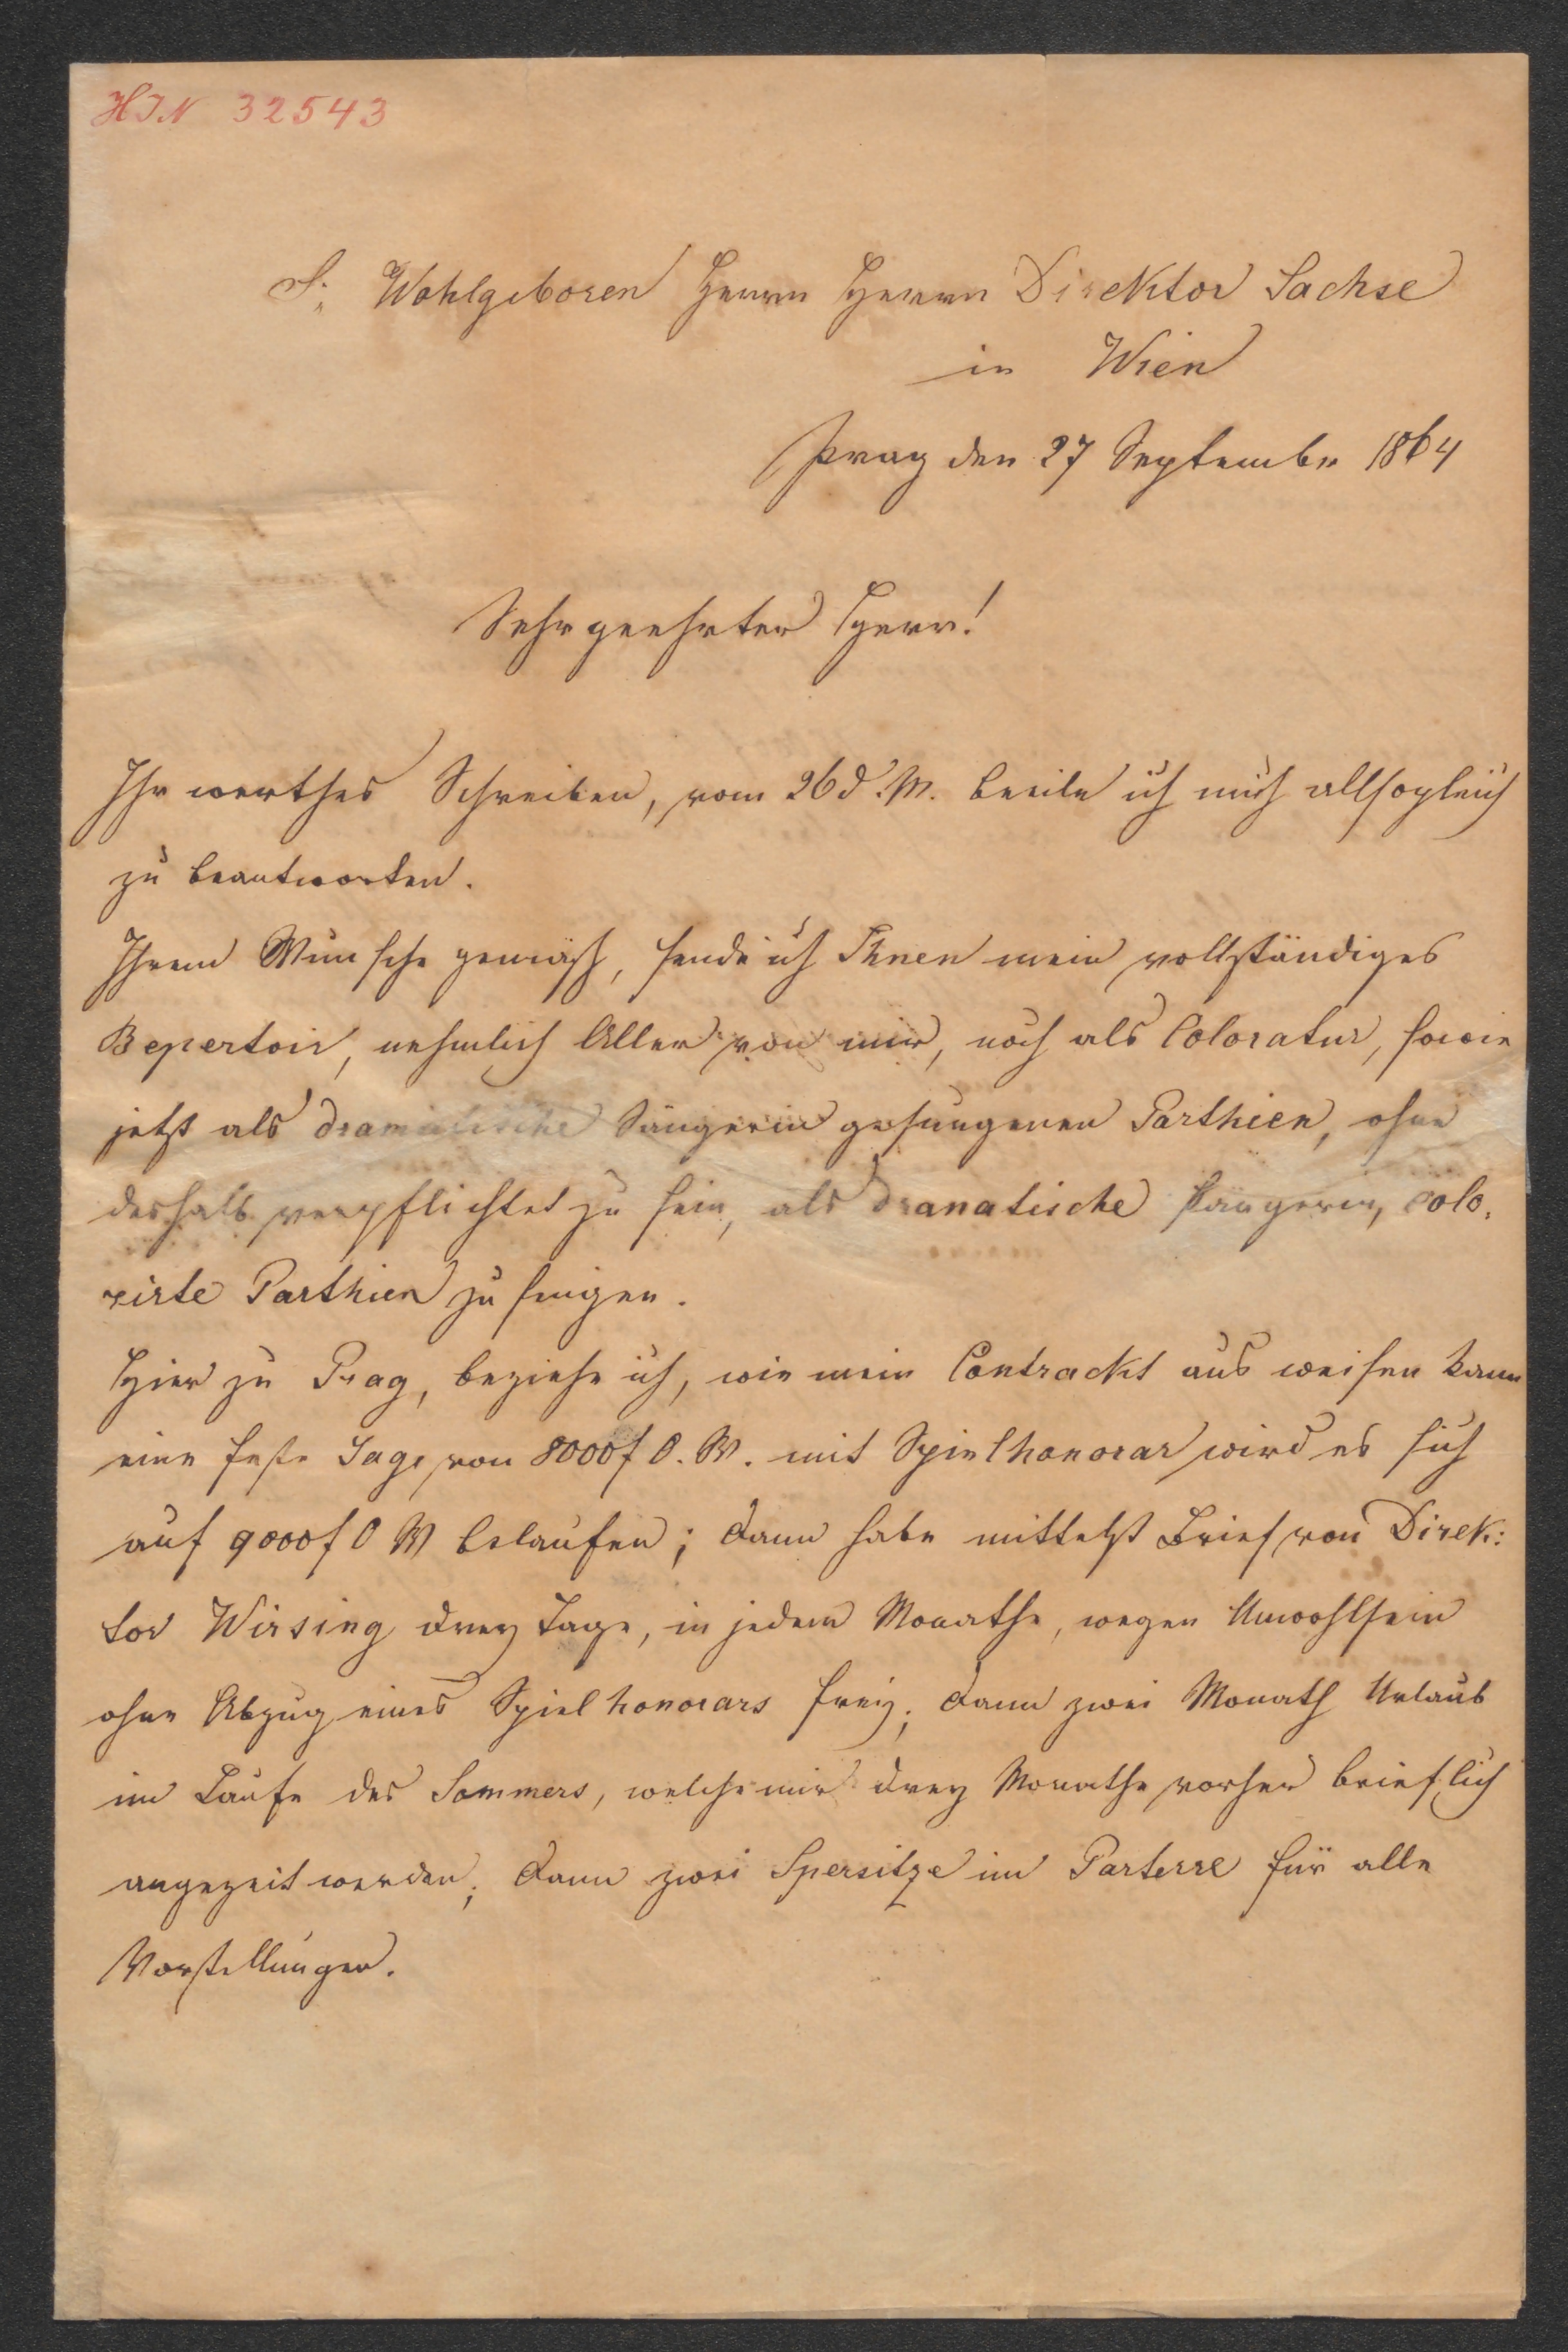 HJN 32543
S: Wohlgeboren Herrn Herrn Direktor Sachse
in Wien
Prag den 27 September 1864
Sehr geehrter Herr!
Ihr werthes Schreiben, vom 26 d. M. beeile ich mich allsogleich
zu beantworten.
Ihrem Wunsche gemäß, sende ich Ihnen mein vollständiges
Repertoir, nehmlich Aller von mir, noch als Coloratur, sowie
jetzt als dramatische Sängerin gesungenen Parthien, ohne
deshalb verpflichtet zu sein, als dramatische Sängerin, colo:
rirte Parthien zu singen.
Hier zu Prag, beziehe ich, wie mein Contrackt aus weisen kann
eine feste Gage von 8000 f O. W. mit Spielhonorar wird es sich
auf 9000 f O W belaufen; dann habe mittelst Brief von Direk:
tor Wirsing drey Tage, in jedem Monathe, wegen Unwohlsein
ohne Abzug eines Spielhonorars frey; dann zwei Monath Urlaub
im Laufe des Sommers, welche mir drey Monathe vorher brieflich
angezeit werden; dann zwei Spersitze im Parterre für alle
Vorstellungen.